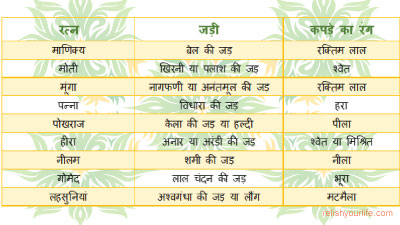 रत्न जड़ी कपड़े का रंग
माणिक्य बेल की जड़ रक्तिम लाल
मोती खिरनी या पलाश की जड़ श्वेत
मूंगा नागफणी या अनंतमूल की जड़ रक्तिम लाल
पन्ना विधारा की जड़ हरा
पोखराज केला की जड़ या हल्दी पीला
हीरा अनार या अरंडी की जड़ श्वेत या मिश्रित
नीलम शमी की जड़ नीला
गोमेद लाल चंदन की जड़ भूरा
लहसुनियां अश्वगंधा की जड़ या लौंग मटमैला
relishyourlife.com